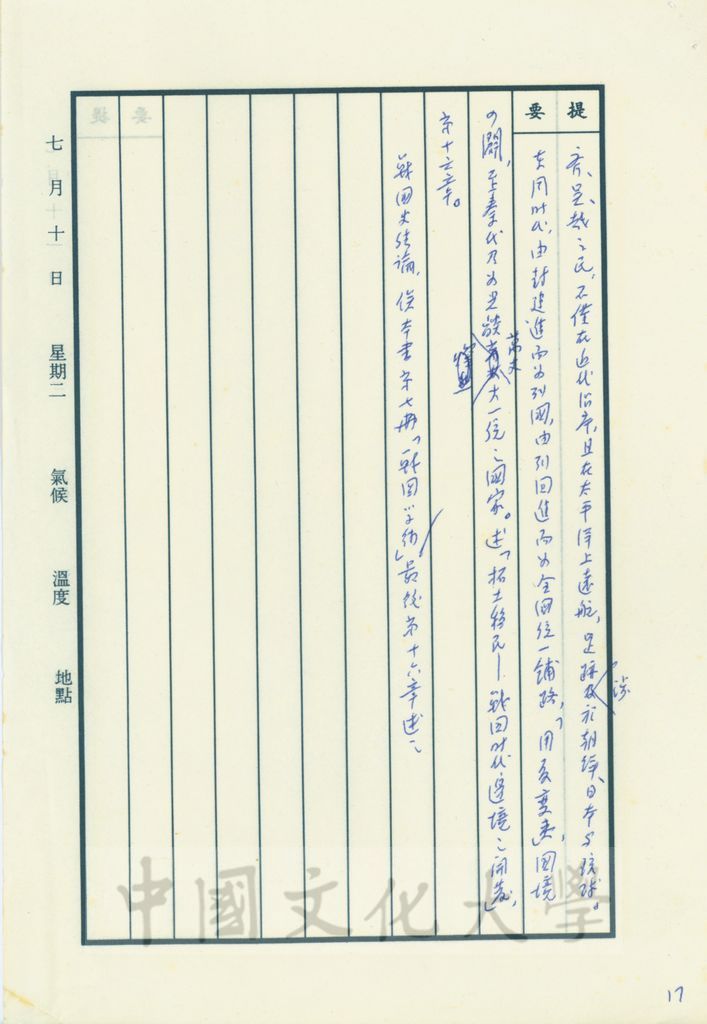 提要
齊、吳、越之民，不僅在近代沿岸，且在太平洋上遠航，足跡及於朝鮮、日本与琉球。
涉
東周时代，由封建進而为列國，由列囯進而为全國统一鋪路，「用夏變夷」，國境
日闢，至秦代乃为大一统之國家。述「拓土移民—戰囯时代邊境之開發」，
第十六章。
戰國史结論，俟本書第七册「戰囯学術」最後第十六章述之
七月十日
星期二
氣候
溫度
地點
中國文化大學
17